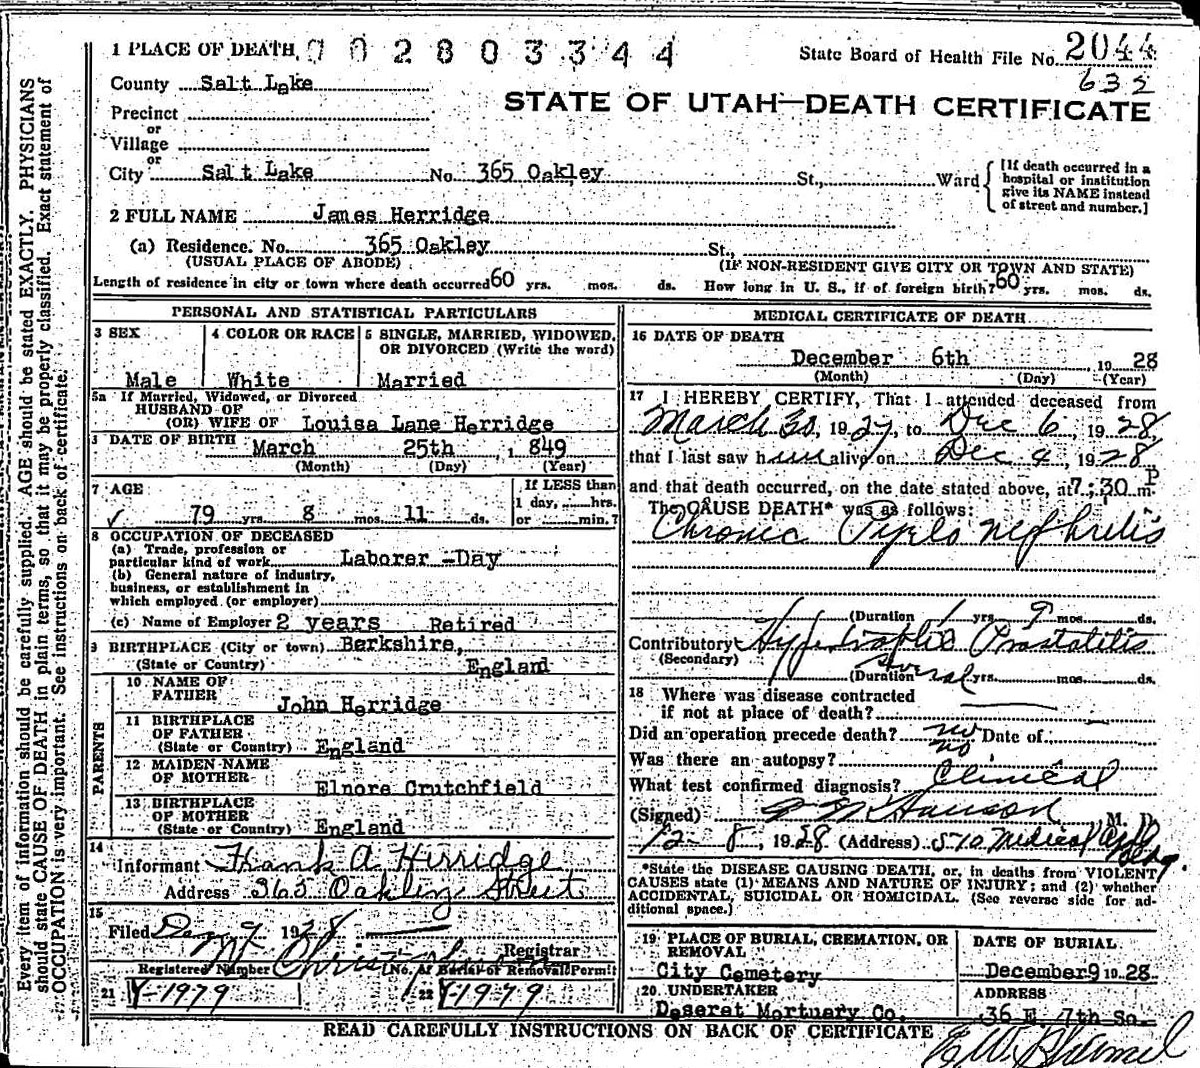 1 PLACE OF DEATH 7 0 2 8 0 3 3 4 4
State Board of Health File No. 2044
632
County Salt Lake
STATE OF UTAH—DEATH CERTIFICATE
Precinct
or
Village
or
City Salt Lake No. 365 Oakley St., Ward
[If death occurred in a
hospital or institution
give its NAME instead
of street and number.]
2 FULL NAME James Herridge
(a) Residence. No. 365 Oakley St.,
(USUAL PLACE OF ABODE) (IF NON-RESIDENT GIVE CITY OR TOWN AND STATE)
Length of residence in city or town where death occurred 60 yrs. mos. ds. How long in U. S., if of foreign birth? 60 yrs. mos. ds.
PERSONAL AND STATISTICAL PARTICULARS
3 SEX
Male
4 COLOR OR RACE
White
5 SINGLE, MARRIED, WIDOWED,
OR DIVORCED (Write the word)
Married
5a If Married, Widowed, or Divorced
HUSBAND OF
(OR) WIFE OF Louisa Lane Herridge
DATE OF BIRTH March 25th , 1 849
(Month) (Day) (Year)
7 AGE
79 yrs. 8 mos. 11 ds.
If LESS than
1 day, hrs.
or min.?
8 OCCUPATION OF DECEASED
(a) Trade, profession or
particular kind of work Laborer -Day
(b) General nature of industry,
business, or establishment in
which employed (or employer)
(c) Name of Employer 2 years Retired
9 BIRTHPLACE (City or town) Berkshire,
(State or Country) England
PARENTS
10 NAME OF
FATHER
John Herridge
11 BIRTHPLACE
OF FATHER
(State or Country) England
12 MAIDEN NAME
OF MOTHER
Elnore Crutchfield
13 BIRTHPLACE
OF MOTHER
(State or Country) England
14
Informant Frank A Herridge
Address 365 Oakley Street
15
Filed Dec 9 1928
Registrar
Registered Number
No. of Burial or Removal Permit
21 Y-1979
22 Y-1979
MEDICAL CERTIFICATE OF DEATH
16 DATE OF DEATH
December 6th 19 28
(Month) (Day) (Year)
17 I HEREBY CERTIFY, That I attended deceased from
March 30, 1927, to Dec 6, 1928,
that I last saw him alive on Dec 4, 1928
and that death occurred, on the date stated above, at 7:30 P m.
The CAUSE DEATH* was as follows:
Chronic Pyelo nephritis
(Duration 1 yrs. 9 mos. ds.
Contributory Hypertrophic Prostatitis
(Secondary)
(Duration several yrs. mos. ds.
18 Where was disease contracted
if not at place of death?
Did an operation precede death? no Date of
Was there an autopsy? no
What test confirmed diagnosis? Clinical
(Signed) Hanson, M. D.
12-8, 1928 (Address) 510 Medical Arts
Bldg.
*State the DISEASE CAUSING DEATH, or, in deaths from VIOLENT
CAUSES state (1) MEANS AND NATURE OF INJURY; and (2) whether
ACCIDENTAL, SUICIDAL OR HOMICIDAL. (See reverse side for ad-
ditional space.)
19 PLACE OF BURIAL, CREMATION, OR
REMOVAL
City Cemetery
DATE OF BURIAL
December 9 1928
20 UNDERTAKER
Deseret Mortuary Co.
ADDRESS
36 E. 7th So.
READ CAREFULLY INSTRUCTIONS ON BACK OF CERTIFICATE
Every item of information should be carefully supplied. AGE should be stated EXACTLY. PHYSICIANS
should state CAUSE OF DEATH in plain terms, so that it may be properly classified. Exact statement of
OCCUPATION is very important. See instructions on back of certificate.